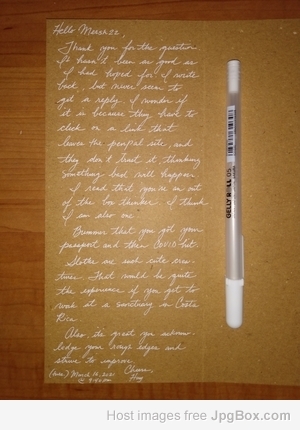 Hello March22,
Thank you for the question.
It hasn't been as good as
I had hoped for. I wrote
back, but never seem to
get a reply. I wonder if
it is because they have to
click on a link that
leaves the penpal site, and
they don't trust it, thinking
something bad will happen.
I read that you're an out
of the box thinker. I think
I am also one.
Bummer that you got your
passport and then COVID hit.
Sloths are such cute crea-
tures. That would be quite
the experience if you get to
work at a sanctuary in Costa
Rica.
Also, its great you acknow-
ledge your rough edges and
strive to improve.
Cheers,
(Tues.) March 16, 2021
@ 9:42 PM
GELLY ROLL 05
Host images free JpgBox.com